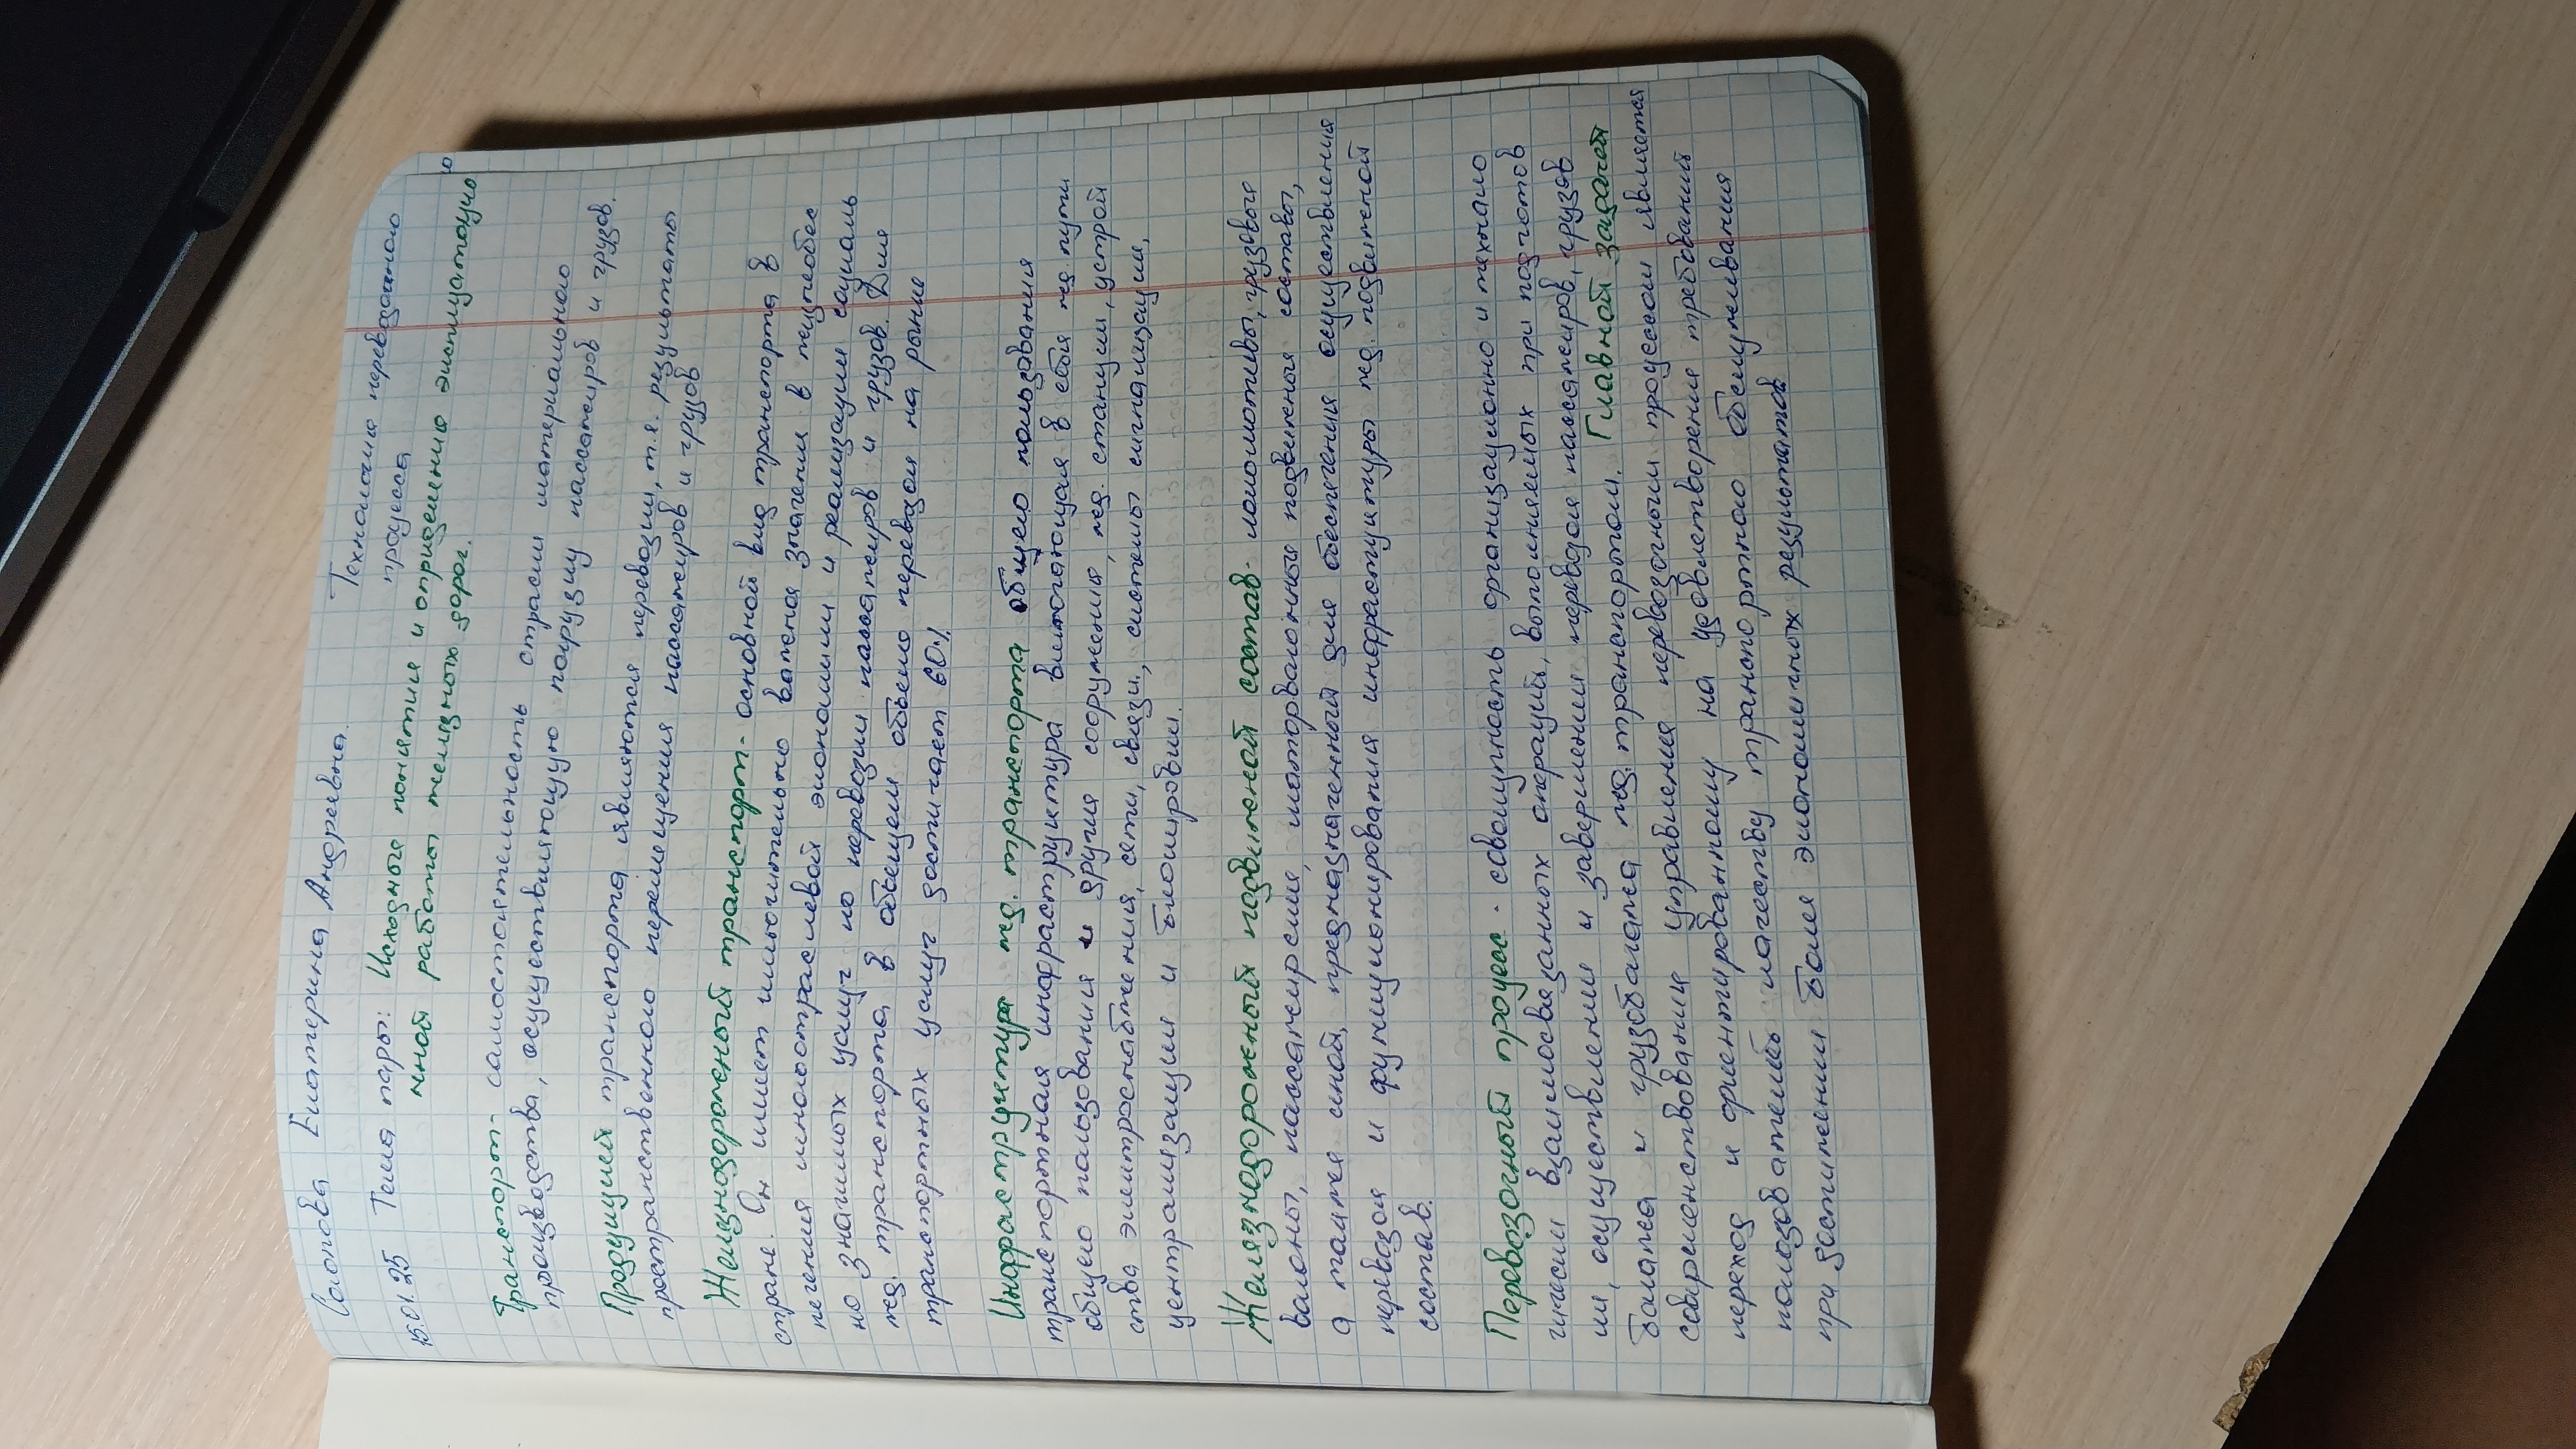 Соколова Екатерина Андреевна. Технология перевозочного
процесса
15.01.25 Тема пары: Исходные понятия и определению эксплуатацио
нной работы железных дорог.
Транспорт- самостоятельность отрасли материального
производства, осуществляющую погрузку пассажиров и грузов.
Продукцией транспорта являются перевозки, т.е. результаты
пространственного перемещения пассажиров и грузов
Железнодорожный транспорт- основной вид транспорта в
стране. Он имеет исключительно важное значение в жизнеобес
печения многоотраслевой экономики и реализации социаль
но значимых услуг по перевозки пассажиров и грузов. Для
жд. транспорта в общем объеме перевозок на рынке
транспортных услуг достигает 60%
Инфраструктура жд. транспорта общего пользования
транспортная инфраструктура включающая в себя жд. пути
общего пользования и другие сооружения, жд. станции, устрой
ства электроснабжения, сети, связи, системы сигнализации,
централизации и блокировки.
Железнодорожный подвижной состав- локомотивы, грузовые
вагоны, пассажирские, моторвагонный подвижные составы,
а также иной, предназначенный для обеспечения осуществления
перевозок и функционирования инфраструктуры жд. подвижной
состав.
Перевозочный процесс - совокупность организационно и техноло
гически взаимосвязанных операций, выполняемых при подготов
ки, осуществлении и завершении перевозок пассажиров, грузов
багажа и грузобагажа жд. транспортом. Главной задачей
совершенствовании управления перевозочным процессом является
переход и ориентированному на удовлетворения требований
пользователей качеству транспортного обслуживания
при достижении более экономичных результатов